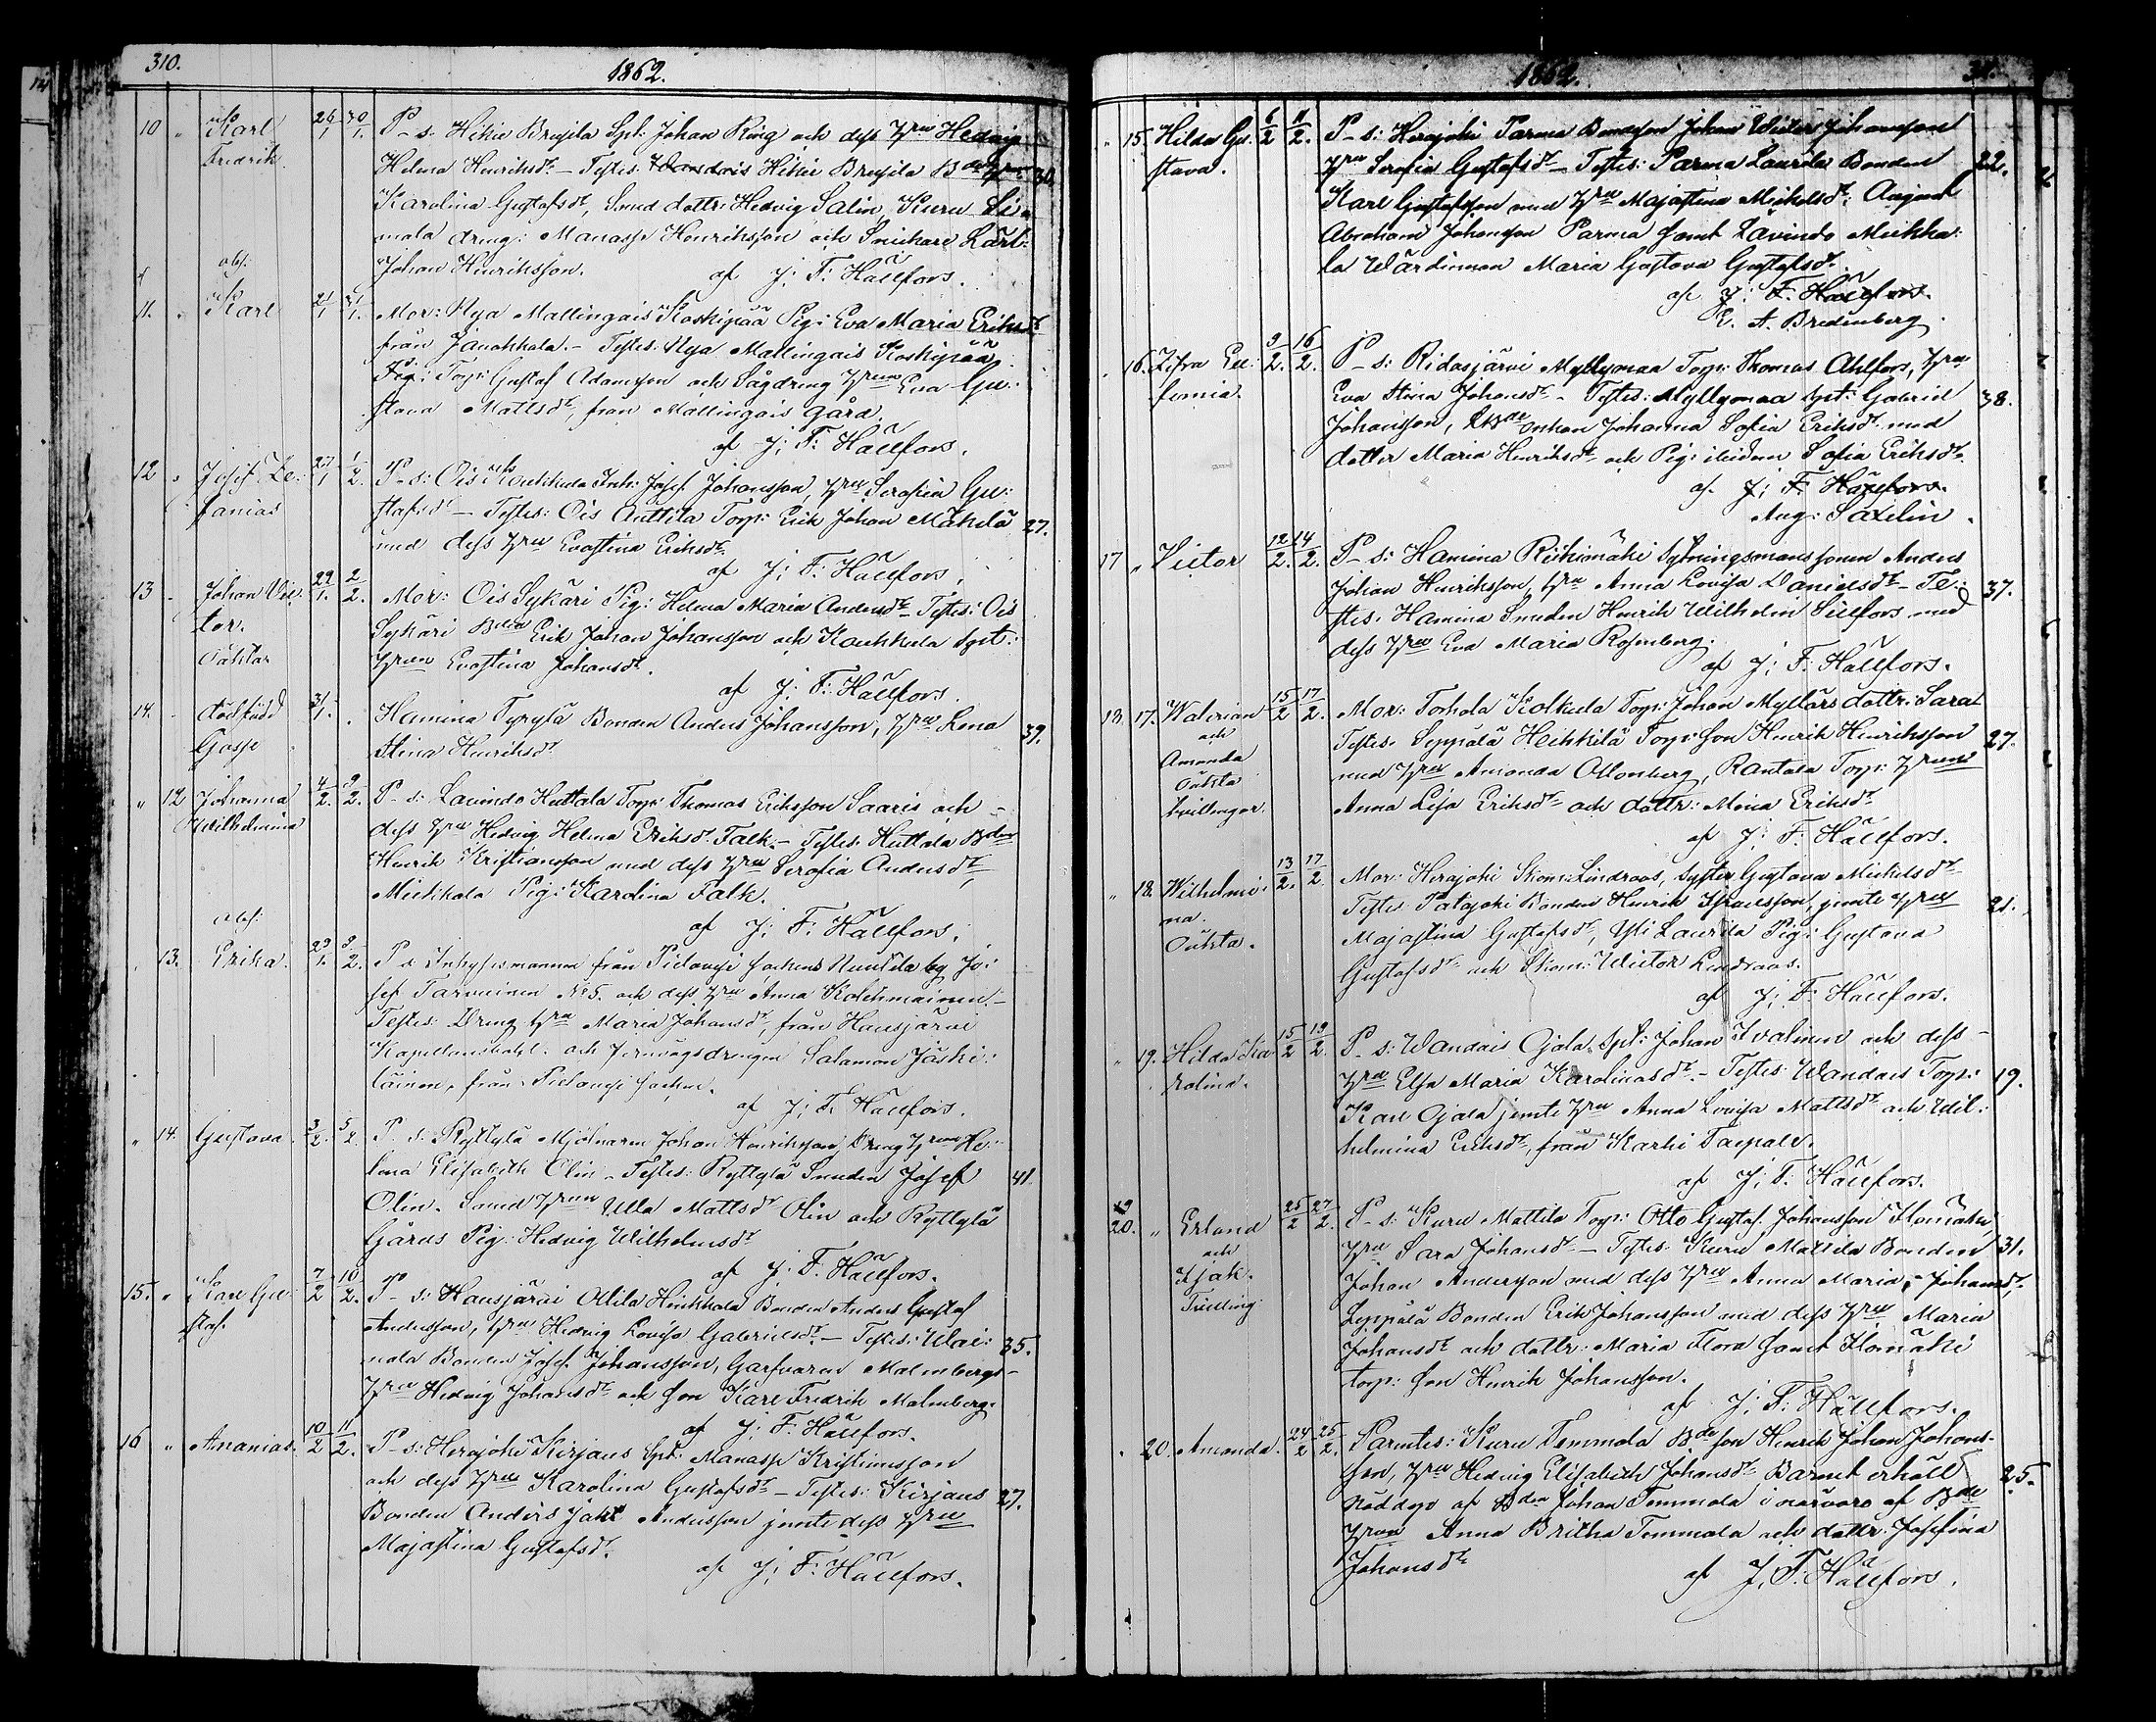 310.
1862.
10 „ Karl 26/1 30/1. P-s: Hikie Brusila Spt: Johan Ring och dess hru Hedvig
Fredrik Helena Henriksdt – Testes: Hikie Brusila Bde hru 30.
Karolina Gustafsdt, Smed dottr: Hedvig Salin, Kuru Li-
mala dreng: Manasse Henriksson och Snickare Lärl:
obs: Johan Henriksson. af J: F: Hällfors.
11. „ Karl 21/1 31/1. Mor: Nya Mallingais Koskipää Pig: Eva Maria Eriksdt
från Janakkala. – Testes: Nya Mallingais Koskipää
Torp: Gustaf Adamsson och Sågdreng hrun Eva Gu-
stava Mattsdt, från Mallingais gård.
af J: F: Hällfors.
12 „ Josef Ze- 27/1 1/2. P-s: Ois Koukkula Inh: Josef Johansson, hru Serafia Gu-
fanias stafsdt – Testes: Ois Anttila Torp: Erik Johan Mäkelä 27.
med dess hru Evastina Eriksdt.
af J: F: Hällfors.
13 „ Johan Vic- 29/1. 2/2. Mor: Ois Sykäri Pig: Helena Maria Andersdt Testes: Ois
tor. Sykäri Bden Erik Johan Johansson och Koukkula Spt:
Oäktar hrun Evastina Johansdt.
af J: F: Hällfors.
14. „ dödfödd 31/1. Hamina Tyrylä Bonden Anders Johansson, hru Lena 39.
Gosse Stina Henriksdt
„ 12 Johanna 4/2. 9/2. P-s: Lavinda Huttala Torp: Thomas Eriksson Saaris och
Wilhelmina dess hru Hedvig Helena Eriksdt Falk. – Testes: Huttala Bden
Henrik Kristiansson med dess hru Serafia Andersdt,
Mickkala Pig: Karolina Falk.
obs: af J: F: Hällfors.
„ 13. Erika. 29/1. 9/2. P-s Inhysesmannen från Pielavesi sockens by Jo-
sef Tarvainen No 5. och dess hru Anna Kolehmainen. –
Testes: Dreng hru Maria Johansdt, från Hausjärvi
Kapellansbohl. och Jernvägsdrengen Salamon Jäski-
läinen, från Pielavesi socken.
af J: F: Hällfors.
„ 14. Gustava. 3/2. 5/2. P-s: Ryttylä Mjölnaren Johan Henriksson, Dreng hrun He-
lena Elisabeth Olin – Testes: Ryttylä Smeden Josef 41.
Olin. Smed hrun Ulla Mattsdt Olin och Ryttylä
Gårds Pig: Hedvig Wilhelmsdt
af J: F: Hällfors.
15. „ Karl Gu- 7/2 10/2. P-s: Hausjärvi Ollila Heikkala Bonden Anders Gustaf
staf. Andersson, hru Hedvig Lovisa Gabrielsdt – Testes: Wai- 35.
mala Bonden Josef Johansson, Garfvaren Malmbergs
hru Hedvig Johansdt och son Karl Fredrik Malmberg.
af J: F: Hällfors.
16 „ Ananias. 10/2 11/2. P-s: Herajoki Kirjaus Spt: Manasse Kristiansson
och dess hru Karolina Gustafsdt – Testes: Kirjaus 27.
Bonden Anders Jakt Andersson jemte dess hru
Majastina Gustafsdt.
af J: F: Hällfors.
1862.
„ 15. Hilda Gu- 6/2 11/2. P-s: Herajoki Parma Bondson Johan Victor Johansson
stava. hru Serafia Gustafsdt – Testes: Parma Laurila Bonden 22.
Karl Gustafsson med hru Majastina Mickelsdt, August
Abraham Johansson Parma samt Lavindo Mickka-
la Wärdinnan Maria Gustava Gustafsdt.
af J: F. Hällfors.
E. A. Bredenberg.
„ 16. Eu- 9/2. 16/2. P-s: Ridasjärvi Myllymaa Torp: Thomas Ahlfors, hru
femia. Eva Stina Johansdt – Testes: Myllymaa Spt: Gabriel 38.
Johansson, enkan Johanna Sofia Eriksdt med
dotter Maria Henriksdt och Pig: Sofia Eriksdt.
af J: F. Hällfors.
Aug: Saxelin.
17 „ Victor 12/2. 14/2. P-s: Hamina Riihimäki Sytningsmanssonen Anders
Johan Henriksson, hru Anna Lovisa Danielsdt – Te- 37.
stes: Hamina Smeden Henrik Wilhelm Sillfors med
dess hru Eva Maria Rosenberg.
af J: F: Hällfors.
18. 17. Walerian 15/2 17/2. Mor: Torhola Kolkula Torp: Johan Myllärs dottr: Sara
och Testes: Seppälä Heikkilä Torp: son Henrik Henriksson 27.
Amanda med hru Amanda Ollonberg, Rantala Torp: hrun
Oäkta Anna Lisa Eriksdt och dottr: Mina Eriksdt
tvillingar. af J: F: Hällfors.
„ 18. Wilhelmi- 13/2. 17/2. Mor: Herajoki Skom: Lindroos, Syster Gustava Mickelsdt
na. Testes: Patajoki Bonden Henrik jemte hru 21.
Oäkta. Majastina Gustafsdt, Yli Laurila Pig: Gustava
Gustafsdt och Skom: Victor Lindroos.
af J: F: Hällfors.
„ 19. Hilda Ka- 15/2 19/2. P-s: Wandais Ojala Spt: Johan Ivalinen och dess
rolina. hru Elsa Maria Karolinasdt. – Testes: Wandais Torp: 19.
Karl Ojala jemte hru Anna Lovisa Mattsdt och Wil-
helmina Eriksdt, från Karhi Taipale.
af J: F. Hällfors.
20. „ Erland 25/2 27/2. P-s: Kuru Mattila Torp: Otto Gustaf Johansson Homäki,
och hru Sara Johansdt – Testes: Kuru Mattila Bonden 31.
Isak. Johan Andersson med dess hru Anna Maria Johansdt,
Tvilling: Seppälä Bonden Erik Johansson med dess hru Maria
Johansdt och dottr: Maria Flora samt Homäki
torp: son Henrik Johansson.
af J: F: Hällfors.
„ 20. Amanda. 24/2 25/2. Parentes: Kuru Temmola Bde son Henrik Johan Johans-
son, hru Hedvig Elisabeth Johansdt Barnet erhöll 25.
nöddop af Bden Johan Temmola i närvaro af Bde
hrun Anna Britha Temmola och dottr: Josefina
Johansdt af J: F: Hällfors.